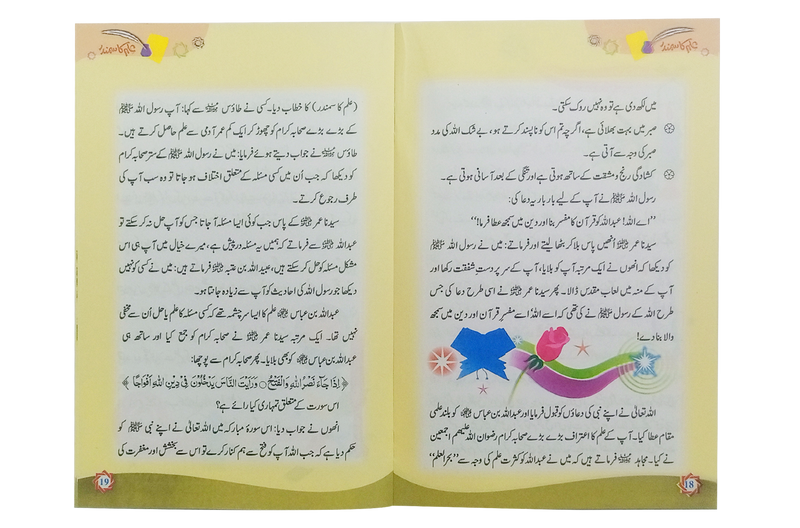 علم کا سمندر
میں لکھ دی ہے تو وہ نہیں روک سکتی۔
صبر میں بہت بھلائی ہے، اگرچہ تم اس کو ناپسند کرتے ہو، بے شک اللہ کی مدد
صبر کی وجہ سے آتی ہے۔
کشادگی رنج و مشقت کے ساتھ ہوتی ہے اور تنگی کے بعد آسانی ہوتی ہے۔
رسول اللہ ﷺ نے آپ کے لیے بار بار یہ دعا کی:
’’اے اللہ! عبداللہ کو قرآن کا مفسر بنا اور دین میں سمجھ عطا فرما!‘‘
سیدنا عمر رضی اللہ عنہ انھیں پاس بلا کر بٹھا لیتے اور فرماتے: میں نے رسول اللہ ﷺ
کو دیکھا کہ انھوں نے ایک مرتبہ آپ کو بلایا، آپ کے سر پر دستِ شفقت رکھا اور
آپ کے منہ میں لعاب مقدس ڈالا۔ پھر سیدنا عمر رضی اللہ عنہ نے اسی طرح دعا کی جس
طرح اللہ کے رسول ﷺ نے کی تھی کہ اے اللہ! اسے مفسرِ قرآن اور دین میں سمجھ
والا بنا دے!
اللہ تعالیٰ نے اپنے نبی کی دعاؤں کو قبول فرمایا اور عبداللہ بن عباس رضی اللہ عنہما کو بلند علمی
مقام عطا کیا۔ آپ کے علم کا اعتراف بڑے بڑے صحابہ کرام رضوان اللہ علیھم اجمعین
نے کیا۔ مجاہد رحمہ اللہ فرماتے ہیں کہ میں نے عبداللہ کو کثرت علم کی وجہ سے ’’بحر العلم‘‘
18
علم کا سمندر
(علم کا سمندر) کا خطاب دیا۔ کسی نے طاؤس رحمہ اللہ سے کہا: آپ رسول اللہ ﷺ
کے بڑے بڑے صحابہ کرام کو چھوڑ کر ایک کم عمر آدمی سے علم حاصل کرتے ہیں۔
طاؤس رحمہ اللہ نے جواب دیتے ہوئے فرمایا: میں نے رسول اللہ ﷺ کے ستر صحابہ کرام
کو دیکھا کہ جب اُن میں کسی مسئلہ کے متعلق اختلاف ہو جاتا تو وہ سب آپ کی
طرف رجوع کرتے۔
سیدنا عمر رضی اللہ عنہ کے پاس جب کوئی ایسا مسئلہ آ جاتا جس کو آپ حل نہ کر سکتے تو
عبداللہ رضی اللہ عنہ سے فرماتے کہ ہمیں یہ مسئلہ درپیش ہے، میرے خیال میں آپ ہی اس
مشکل مسئلہ کو حل کر سکتے ہیں، عبیداللہ بن عتبہ رحمہ اللہ فرماتے ہیں: میں نے کسی کو نہیں
دیکھا جو رسول اللہ کی احادیث کو آپ سے زیادہ جانتا ہو۔
عبداللہ بن عباس رضی اللہ عنہما علم کا ایسا سرچشمہ تھے کہ کسی مسئلہ کا علم یا حل اُن سے مخفی
نہیں تھا۔ ایک مرتبہ سیدنا عمر رضی اللہ عنہ نے صحابہ کرام کو جمع کیا اور ساتھ ہی
عبداللہ بن عباس رضی اللہ عنہما کو بھی بلایا۔ پھر صحابہ کرام سے پوچھا:
﴿ اِذَا جَآءَ نَصْرُ اللّٰهِ وَالْفَتْحُ ○ وَرَاَيْتَ النَّاسَ يَدْخُلُوْنَ فِيْ دِيْنِ اللّٰهِ اَفْوَاجًا ﴾
اس سورت کے متعلق تمہاری کیا رائے ہے؟
انھوں نے جواب دیا: اس سورۂ مبارکہ میں اللہ تعالیٰ نے اپنے نبی ﷺ کو
حکم دیا ہے کہ جب اللہ آپ کو فتح سے ہم کنار کرے تو اس سے بخشش اور مغفرت کی
19